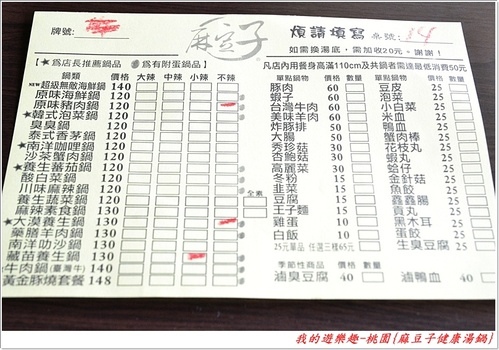 牌號:
麻豆子
煩請填寫 桌號: 14
如需換湯底，需加收20元。謝謝!
【★為店長推薦鍋品】 【為有附蛋鍋品】
凡店內用餐身高滿110cm及共鍋者需達最低消費50元
鍋類 價格 大辣 中辣 小辣 不辣
NEW超級無敵海鮮鍋 140
原味海鮮鍋 120
原味豬肉鍋 120
★韓式泡菜鍋 120
臭臭鍋 120
泰式香茅鍋 120
★南洋咖哩鍋 120
沙茶蟹肉鍋 120
★養生蕃茄鍋 120
酸白菜鍋 120
川味麻辣鍋 120
養生蔬菜鍋 120 全素
麻辣素食鍋 130
★大漠養生鍋 130
藥膳羊肉鍋 130
南洋叻沙鍋 130
藏苗養生鍋 130
牛肉鍋(臺灣牛) 140
黃金豚燒套餐 148
單點鍋物 價格 數量 單點鍋物 價格 數量
豚肉 60 豆皮 25
蝦子 60 泡菜 25
台灣牛肉 60 小白菜 25
美味羊肉 60 米血 25
炸豚排 50 鴨血 25
大腸 50 蟹肉棒 25
秀珍菇 30 花枝丸 25
杏鮑菇 30 蝦丸 25
高麗菜 30 蛤仔 25
冬粉 15 金針菇 25
韭菜 15 魚餃 25
豆腐 15 鑫鑫腸 25
王子麵 15 貢丸 25
雞蛋 10 黑木耳 25
白飯 10 蛋餃 25
25元單品 任選三樣65元 生臭豆腐 25
季節性商品 價格 數量 價格 數量
滷臭豆腐 40 滷鴨血 40
我的遊樂趣-桃園{麻豆子健康湯鍋}